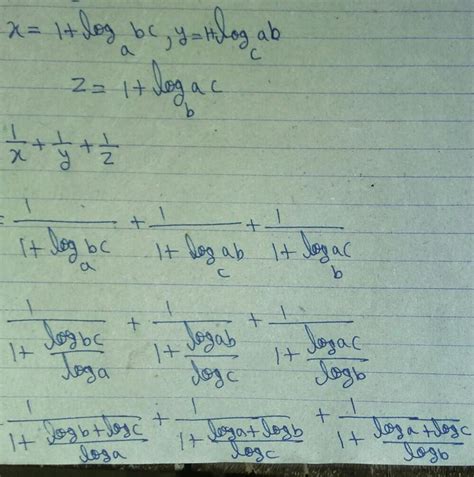 x = 1 + log_a bc, y = 1 + log_c ab
z = 1 + log_b ac
1/x + 1/y + 1/z
= 1/(1 + log_a bc) + 1/(1 + log_c ab) + 1/(1 + log_b ac)
1/(1 + logbc/loga) + 1/(1 + logab/logc) + 1/(1 + logac/logb)
1/(1 + (logb + logc)/loga) + 1/(1 + (loga + logb)/logc) + 1/(1 + (loga + logc)/logb)